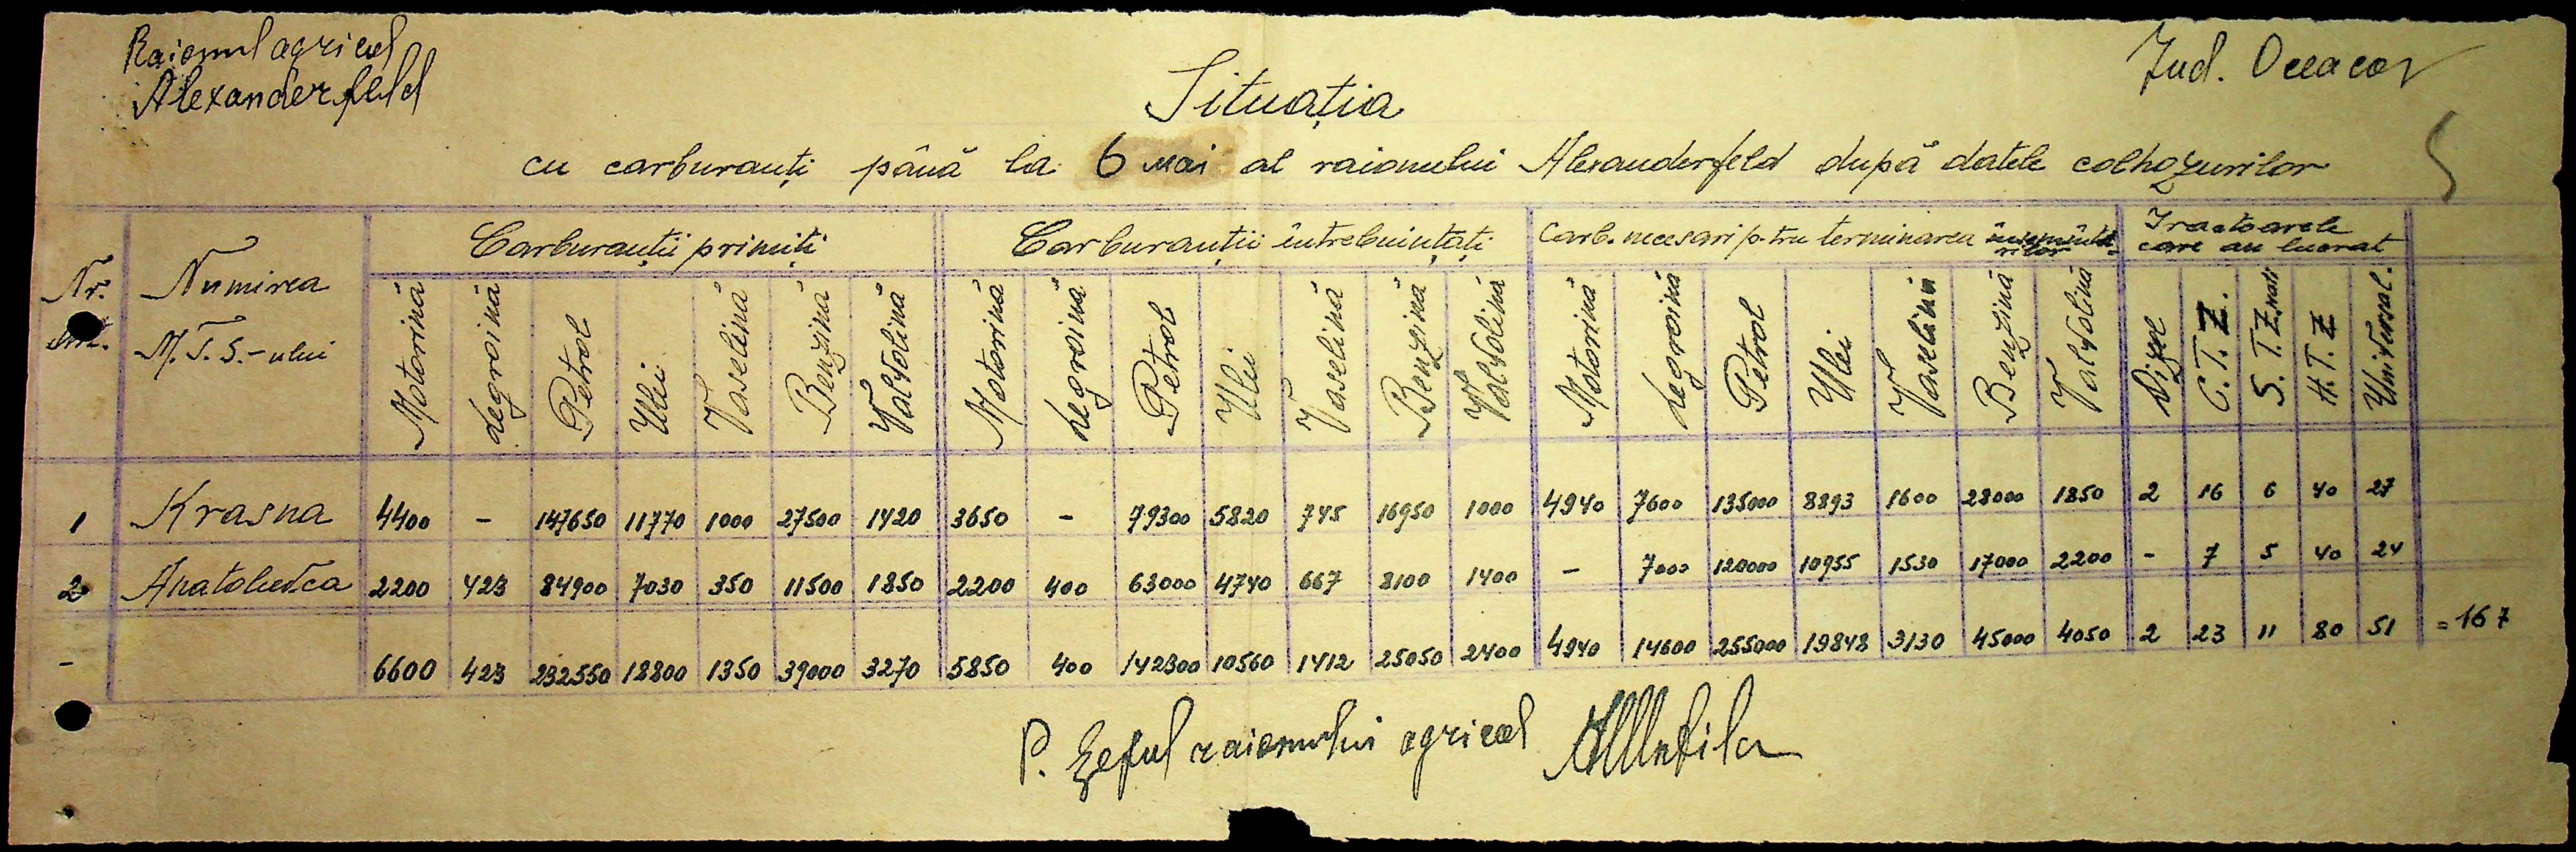 Raionul agricol
Alexanderfeld
Jud. Oceacov
Situația
cu carburanți până la 6 mai al raionului Alexanderfeld după datele colhozurilor
Nr. crt. | Numirea M.T.S.-ului | Carburanții primiți | Carburanții întrebuințați | Carb. necesari p-tru terminarea însemințărilor | Tractoarele care au lucrat
Motorină | Legroină | Petrol | Ulei | Vaselină | Benzină | Valvolină | Motorină | Legroină | Petrol | Ulei | Vaselină | Benzină | Valvolină | Motorină | Legroină | Petrol | Ulei | Vaselină | Benzină | Valvolină | Dizel | C.T.Z. | S.T.Z. nati | H.T.Z | Universal.
1 | Krasna | 4400 | - | 147650 | 11770 | 1000 | 27500 | 1420 | 3650 | - | 79300 | 5820 | 745 | 16950 | 1000 | 4940 | 7600 | 135000 | 8893 | 1600 | 28000 | 1850 | 2 | 16 | 6 | 40 | 27
2 | Anatolievca | 2200 | 423 | 84900 | 7030 | 350 | 11500 | 1850 | 2200 | 400 | 63000 | 4740 | 667 | 8100 | 1400 | - | 7000 | 120000 | 10955 | 1530 | 17000 | 2200 | - | 7 | 5 | 40 | 24
- | 6600 | 423 | 232550 | 18800 | 1350 | 39000 | 3270 | 5850 | 400 | 142300 | 10560 | 1412 | 25050 | 2400 | 4940 | 14600 | 255000 | 19848 | 3130 | 45000 | 4050 | 2 | 23 | 11 | 80 | 51 | = 167
P. Șeful raionului agricol